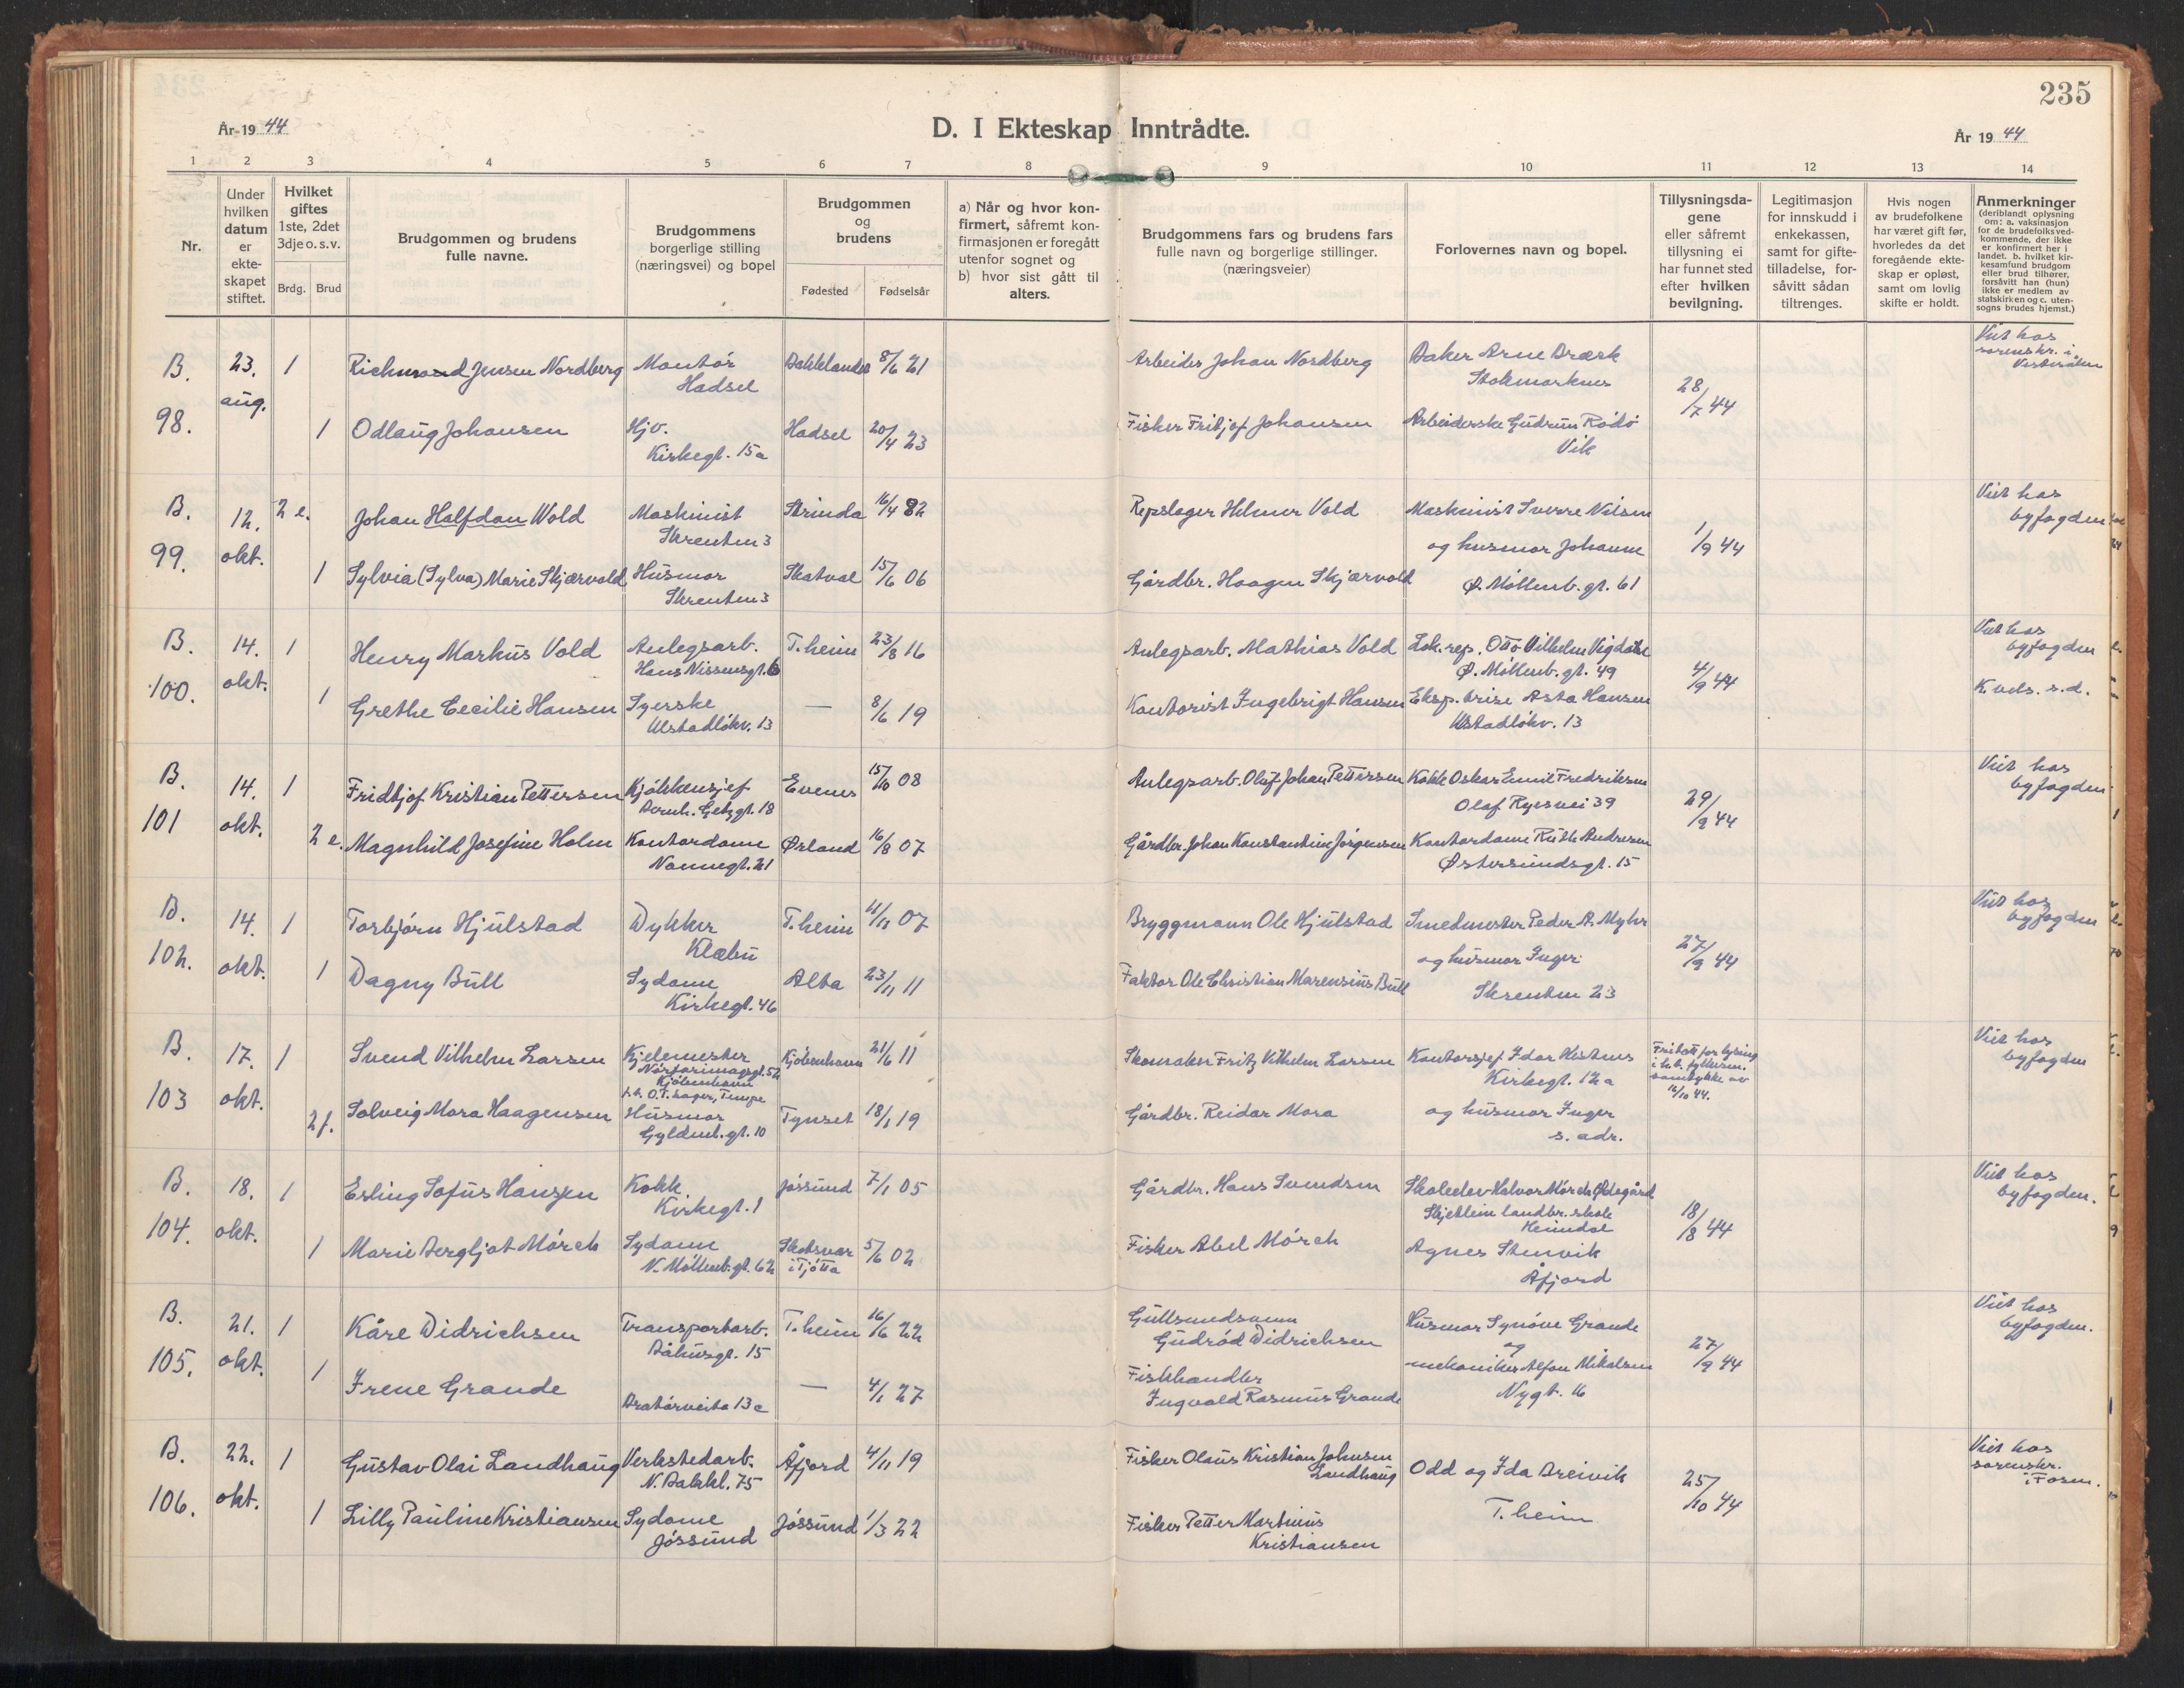 235
År 19 44
D. I Ekteskap Inntrådte.
År 19 44
1 2 3 4 5 6 7 8 9 10 11 12 13 14
Nr.
Under hvilken datum er ekteskapet stiftet.
Hvilket giftes 1ste, 2det 3dje o.s.v.
Brdg. Brud
Brudgommen og brudens fulle navne.
Brudgommens borgerlige stilling (næringsvei) og bopel
Brudgommen og brudens
Fødested Fødselsår
a) Når og hvor konfirmert, såfremt konfirmasjonen er foregått utenfor sognet og
b) hvor sist gått til alters.
Brudgommens fars og brudens fars fulle navn og borgerlige stillinger. (næringsveier)
Forlovernes navn og bopel.
Tillysningsdagene eller såfremt tillysning ei har funnet sted efter hvilken bevilgning.
Legitimasjon for innskudd i enkekassen, samt for giftetilladelse, forsåvitt sådan tiltrenges.
Hvis nogen av brudefolkene har været gift før, hvorledes da det foregående ekteskap er opløst, samt om lovlig skifte er holdt.
Anmerkninger
(deriblandt oplysning om: a. vaksinasjon for de brudefolks vedkommende, der ikke er konfirmert her i landet. b. hvilket kirkesamfund brudgom eller brud tilhører, forsåvitt han (hun) ikke er medlem av statskirken og c. utensogns brudes hjemst.)
B. 98. 23. aug. 1 Richmond Jensen Nordberg Montør Hadsel Bakklandet 8/6 21 Arbeider Johan Nordberg Baker Arne Bræsk Stokmarknes 28/7 44 Viet hos sorenskr. i Vesterålen
1 Odlaug Johansen Hjv. Kirkegt. 15a Hadsel 20/4 23 Fisker Fritjof Johansen Arbeiderske Gudrun Rødø Vik
B. 99. 12. okt. 2 e. Johan Halfdan Wold Maskinist Skrenten 3 Strinda 16/4 82 Repslager Helmer Vold Maskinist Sverre Nilsen og husmor Johanne Ø. Møllenb. gt. 61 1/9 44 Viet hos byfogden
1 Sylvia (Sylva) Marie Skjærvold Husmor Skrenten 3 Skatval 15/6 06 Gårdbr. Haagen Skjærvold
B. 100. 14. okt. 1 Henry Markus Vold Anlegsarb. Hans Nissensgt. 6 T.heim 23/8 16 Anlegsarb. Mathias Vold Lok.rep. Otto Vilhelm Vigdahl Ø. Møllenb. gt. 49 4/9 44 Viet hos byfogden
1 Grethe Cecilie Hansen Syerske Ulstadløkv. 13 — 8/6 19 Kontorist Ingebrigt Hansen Eksp. trise Asta Hansen Ulstadløkv. 13 K.vels. s.d.
B. 101 14. okt. 1 Fridtjof Kristian Pettersen Kjøkkensjef Bernh. Getzgt. 18 Evenes 15/10 08 Anlegsarb. Olaf Johan Pettersen Kokk Oskar Emil Fredriksen Olaf Ryesvei 39 29/9 44 Viet hos byfogden
2 e. Magnhild Josefine Holm Kontordame Nonnegt. 21 Ørland 16/8 07 Gårdbr. Johan Konstantin Jörgensen Kontordame Ruth Andresen Østersundsgt. 15
B. 102. 14. okt. 1 Torbjørn Hjulstad Dykker Klæbu T.heim 4/11 07 Bryggmann Ole Hjulstad Smedmester Peder A. Myhr og husmor Inger Skrenten 23 27/9 44 Viet hos byfogden
1 Dagny Bull Sydame Kirkegt. 46 Alta 23/11 11 Faktor Ole Christian Marensius Bull
B. 103 17. okt. 1 Svend Vilhelm Larsen Kjelemester Nørfarimagsgt. 52 Kjöbenhavn t.h. O.T. Lager, Tempe Kjöbenhavn 21/6 11 Skomaker Fritz Vilhelm Larsen Kontorsjef Idar Hestnes Kirkegt. 12a og husmor Inger s. adr. Fritatt for lysning i h.t. fylkesm. samtykke av 12/10 44. Viet hos byfogden
2 f. Solveig Mora Haagensen Husmor Gyldenl. gt. 10 Tynset 18/1 19 Gårdbr. Reidar Mora
B. 104. 18. okt. 1 Erling Sofus Hansen Kokk Kirkegt. 1 Jössund 7/1 05 Gårdbr. Hans Svendsen Skoleelev Halvor Mörch Ødegård Skjetlein landbr. skole Heimdal 18/8 44 Viet hos byfogden.
1 Marie Bergljot Mörch Sydame N. Møllenb. gt. 62 Skotsvær i Tjøtta 5/6 02 Fisker Abel Mörch Agnes Stenvik Åfjord
B. 105. 21. okt. 1 Kåre Didrichsen Transportarb. Båhusgt. 15 T.heim 16/6 22 Gullsmedsvenn Gudrød Didrichsen Husmor Synöve Grande og mekaniker Alfon Mikalsen Nygt. 16 27/9 44 Viet hos byfogden.
1 Irene Grande Bratørveita 13 c — 4/1 27 Fiskhandler Ingvald Rasmus Grande
B. 106. 22. okt. 1 Gustav Olai Landhaug Verkstedarb. N. Bakkl. 75 Åfjord 4/11 19 Fisker Olaus Kristian Johnsen Landhaug Odd og Ida Breivik T.heim 25/10 44 Viet hos sorenskr. i Fosen.
1 Lilly Pauline Kristiansen Sydame Jössund Jössund 1/3 22 Fisker Petter Martinus Kristiansen